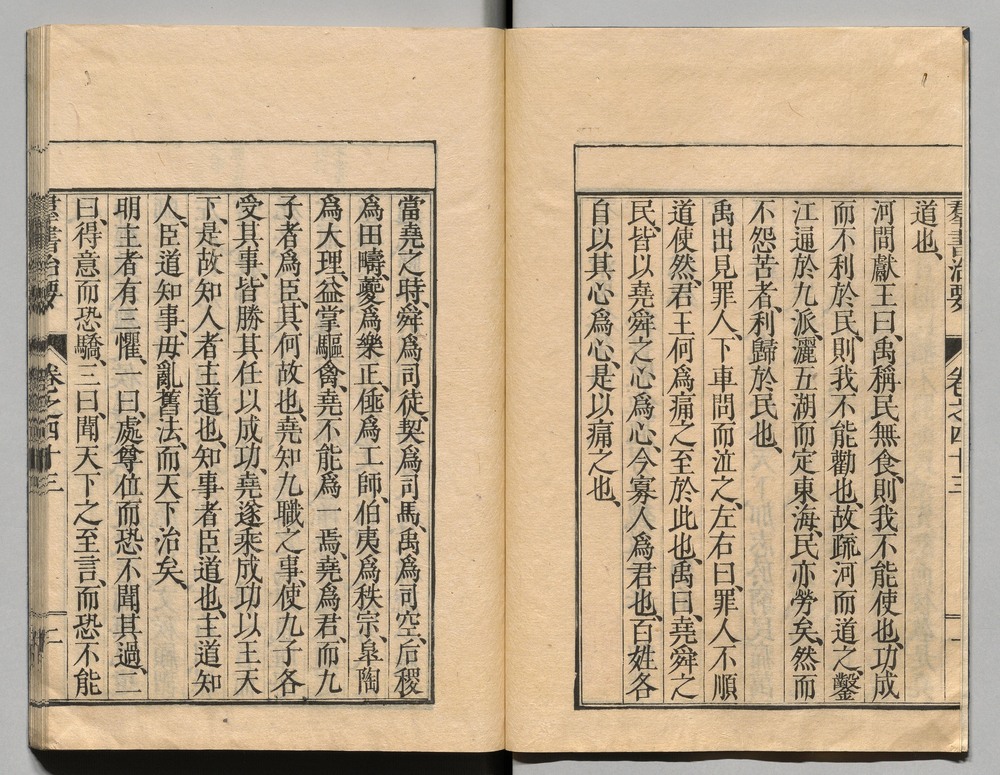 羣書治要 卷之四十三 一
道也、
河間獻王曰、禹稱民無食、則我不能使也、功成
而不利於民、則我不能勸也、故疏河而道之、鑿
江通於九派、灑五湖而定東海、民亦勞矣、然而
不怨苦者、利歸於民也、
禹出見罪人、下車問而泣之、左右曰、罪人不順
道使然、君王何爲痛之至於此也、禹曰、堯舜之
民、皆以堯舜之心爲心、今寡人爲君也、百姓各
自以其心爲心、是以痛之也、
當堯之時、舜爲司徒、契爲司馬、禹爲司空、后稷
爲田疇、夔爲樂正、倕爲工師、伯夷爲秩宗、皐陶
爲大理、益掌驅禽、堯不能爲一焉、堯爲君、而九
子者爲臣、其何故也、堯知九職之事、使九子各
受其事、皆勝其任以成功、堯遂乘成功以王天
下、是故知人者主道也、知事者臣道也、主道知
人、臣道知事、毋亂舊法、而天下治矣、
明主者有三懼、一曰、處尊位而恐不聞其過、二
曰、得意而恐驕、三曰、聞天下之至言、而恐不能
羣書治要 卷之四十三 二